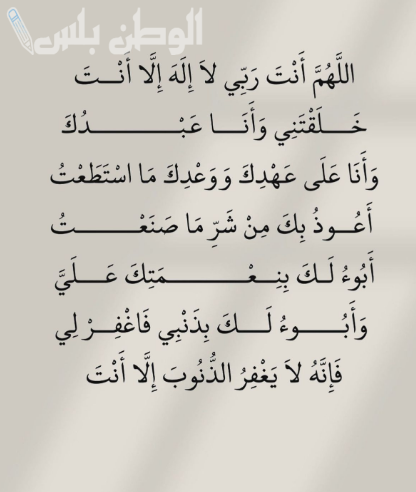 الوطن بلس
اللَّهُمَّ أَنْتَ رَبِّي لاَ إِلَهَ إِلَّا أَنْـتَ
خَـلَقْتَنِي وَأَنَـا عَبْـدُكَ
وَأَنَا عَلَى عَهْدِكَ وَوَعْدِكَ مَا اسْتَطَعْتُ
أَعُـوذُ بِكَ مِنْ شَرِّ مَا صَنَعْـتُ
أَبُوءُ لَـكَ بِنِعْـمَتِكَ عَـلَيَّ
وَأَبُـوءُ لَـكَ بِذَنْبِي فَاغْفِـرْ لِي
فَإِنَّهُ لاَ يَغْفِرُ الذُّنُوبَ إِلَّا أَنْتَ